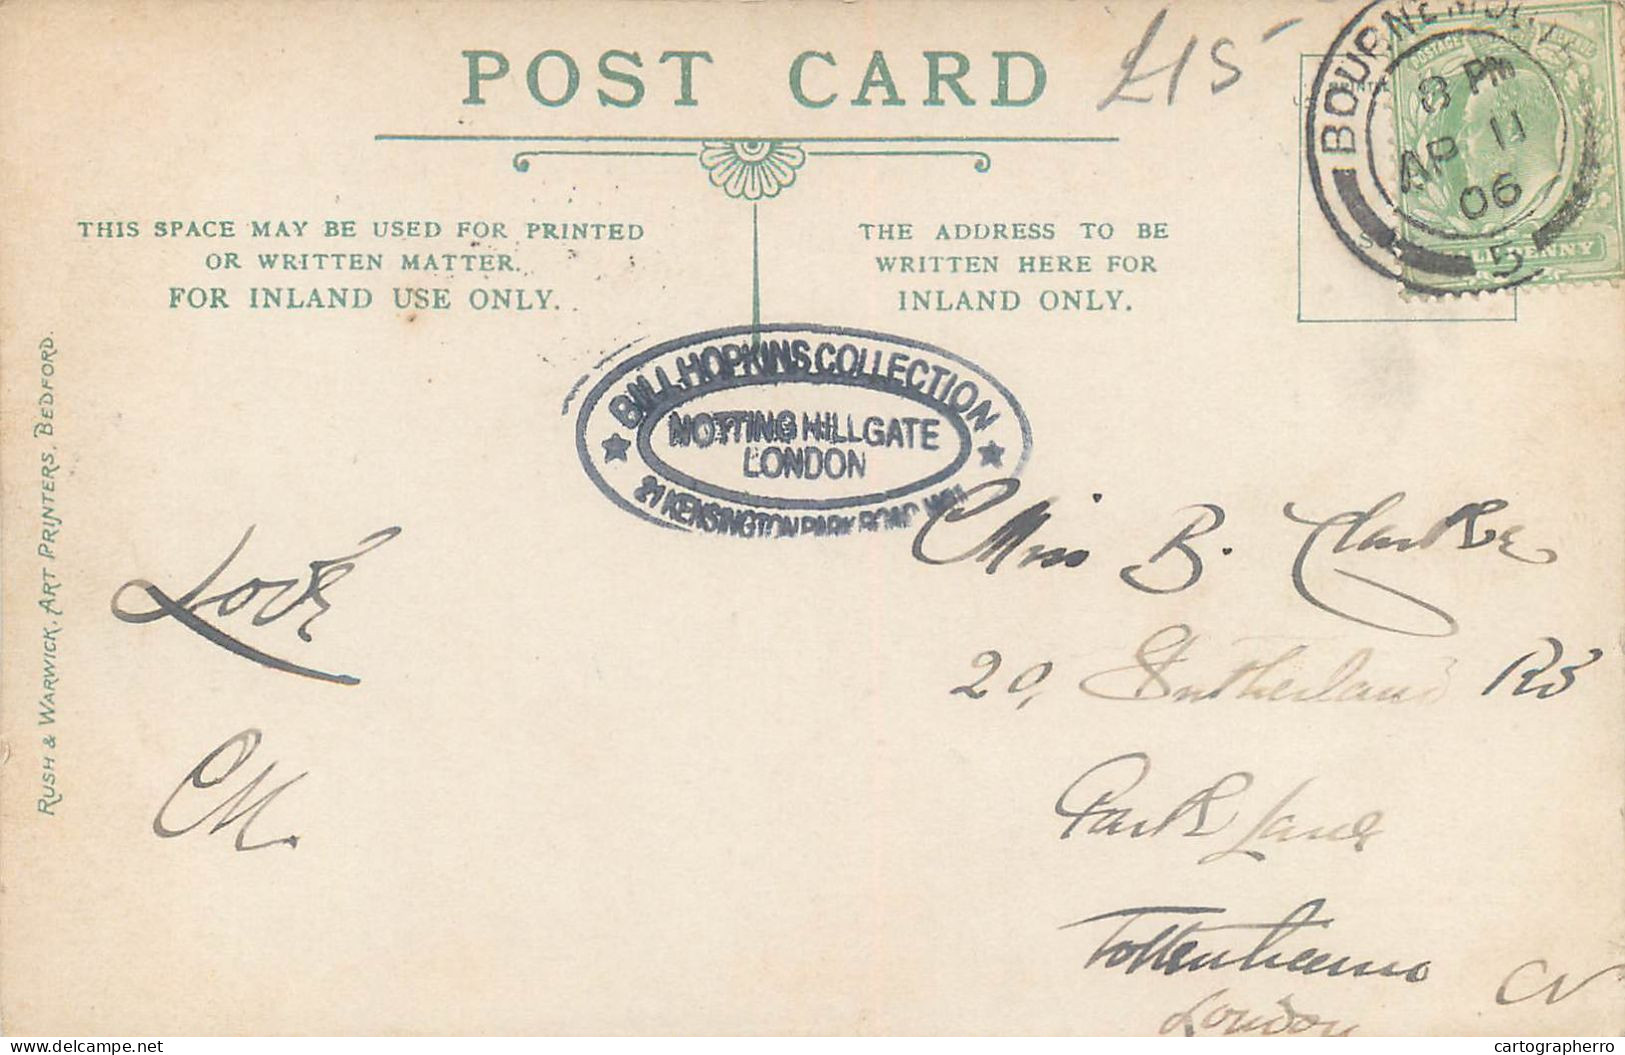 POST CARD
£15
BOURNEMOUTH
8 PM
AP 11
06
5
THIS SPACE MAY BE USED FOR PRINTED
OR WRITTEN MATTER.
FOR INLAND USE ONLY.
THE ADDRESS TO BE
WRITTEN HERE FOR
INLAND ONLY.
BILL HOPKINS COLLECTION
NOTTING HILL GATE
LONDON
21 KENSINGTON PARK ROAD
RUSH & WARWICK, ART PRINTERS, BEDFORD.
Love
CM.
Miss B. Clarke
20, Sutherland Rd
Park Lane
Tottenham
London
delcampe.net
cartographerro